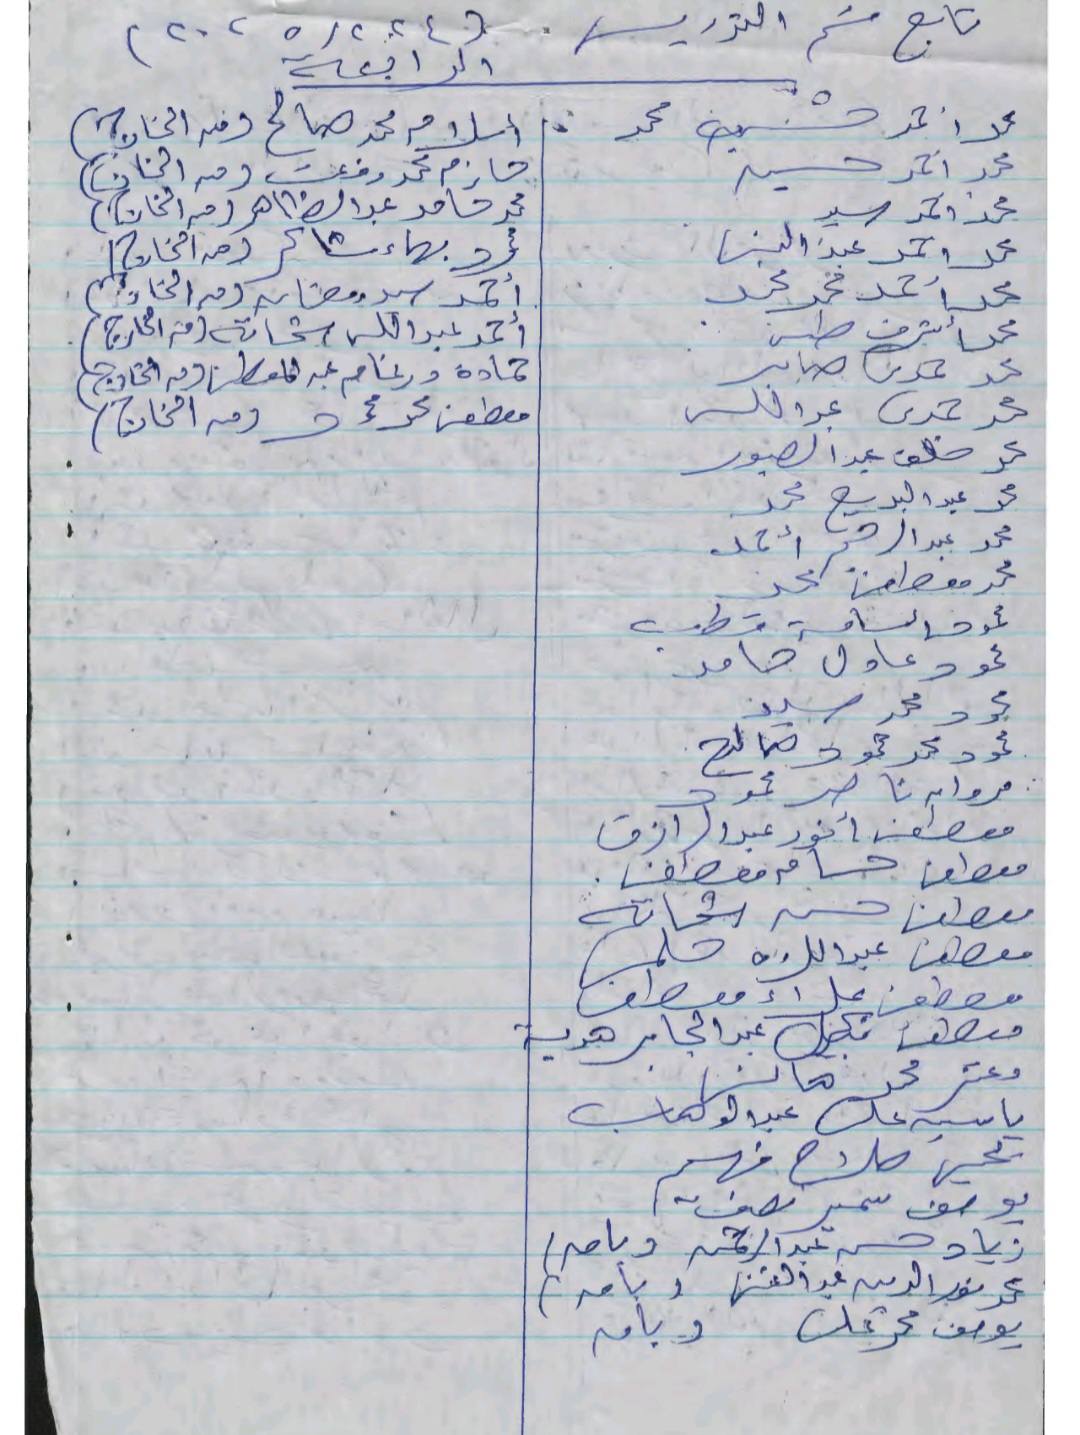 تابع قسم التدريس (٢٠٢٥/٢٠٢٤)
الرابعة
محمد احمد حسين محمد
محمد احمد حسين
محمد احمد سيد
محمد احمد عبد النبي
محمد أحمد محمد
محمد أشرف
محمد حمدى صابر
محمد حمدى عبد اللـ
محمد خلف عبد الصبور
محمد عبد البديع محمد
محمد عبد الرحيم أحمد
محمد مصطفى محمد
محمود اسامة قطب
محمود عادل حامد
محمود محمد سيد
محمود محمد محمود صالح
مروان ناصر محمود
مصطفى أنور عبد الرازق
مصطفى حسام مصطفى
مصطفى حسن شحاته
مصطفى عبد اللاه حلمى
مصطفى علاء مصطفى
مصطفى عبد الجابر هدية
محمد هانى
ياسين على عبد الوهاب
يحيى صلاح فهيم
يوسف سمير
زياد حسن عبد الرحمن
محمد نور الدين عبد الغنى
يوسف محمد على
اسلام محمد صالح (من الخارج)
حازم محمد رفعت (من الخارج)
محمد حامد عبد الظاهر (من الخارج)
بهاء شاكر (من الخارج)
أحمد سيد رمضان (من الخارج)
أحمد عبد اللـ شحاته (من الخارج)
حمادة عبد المعطى (من الخارج)
مصطفى محمد محمود (من الخارج)